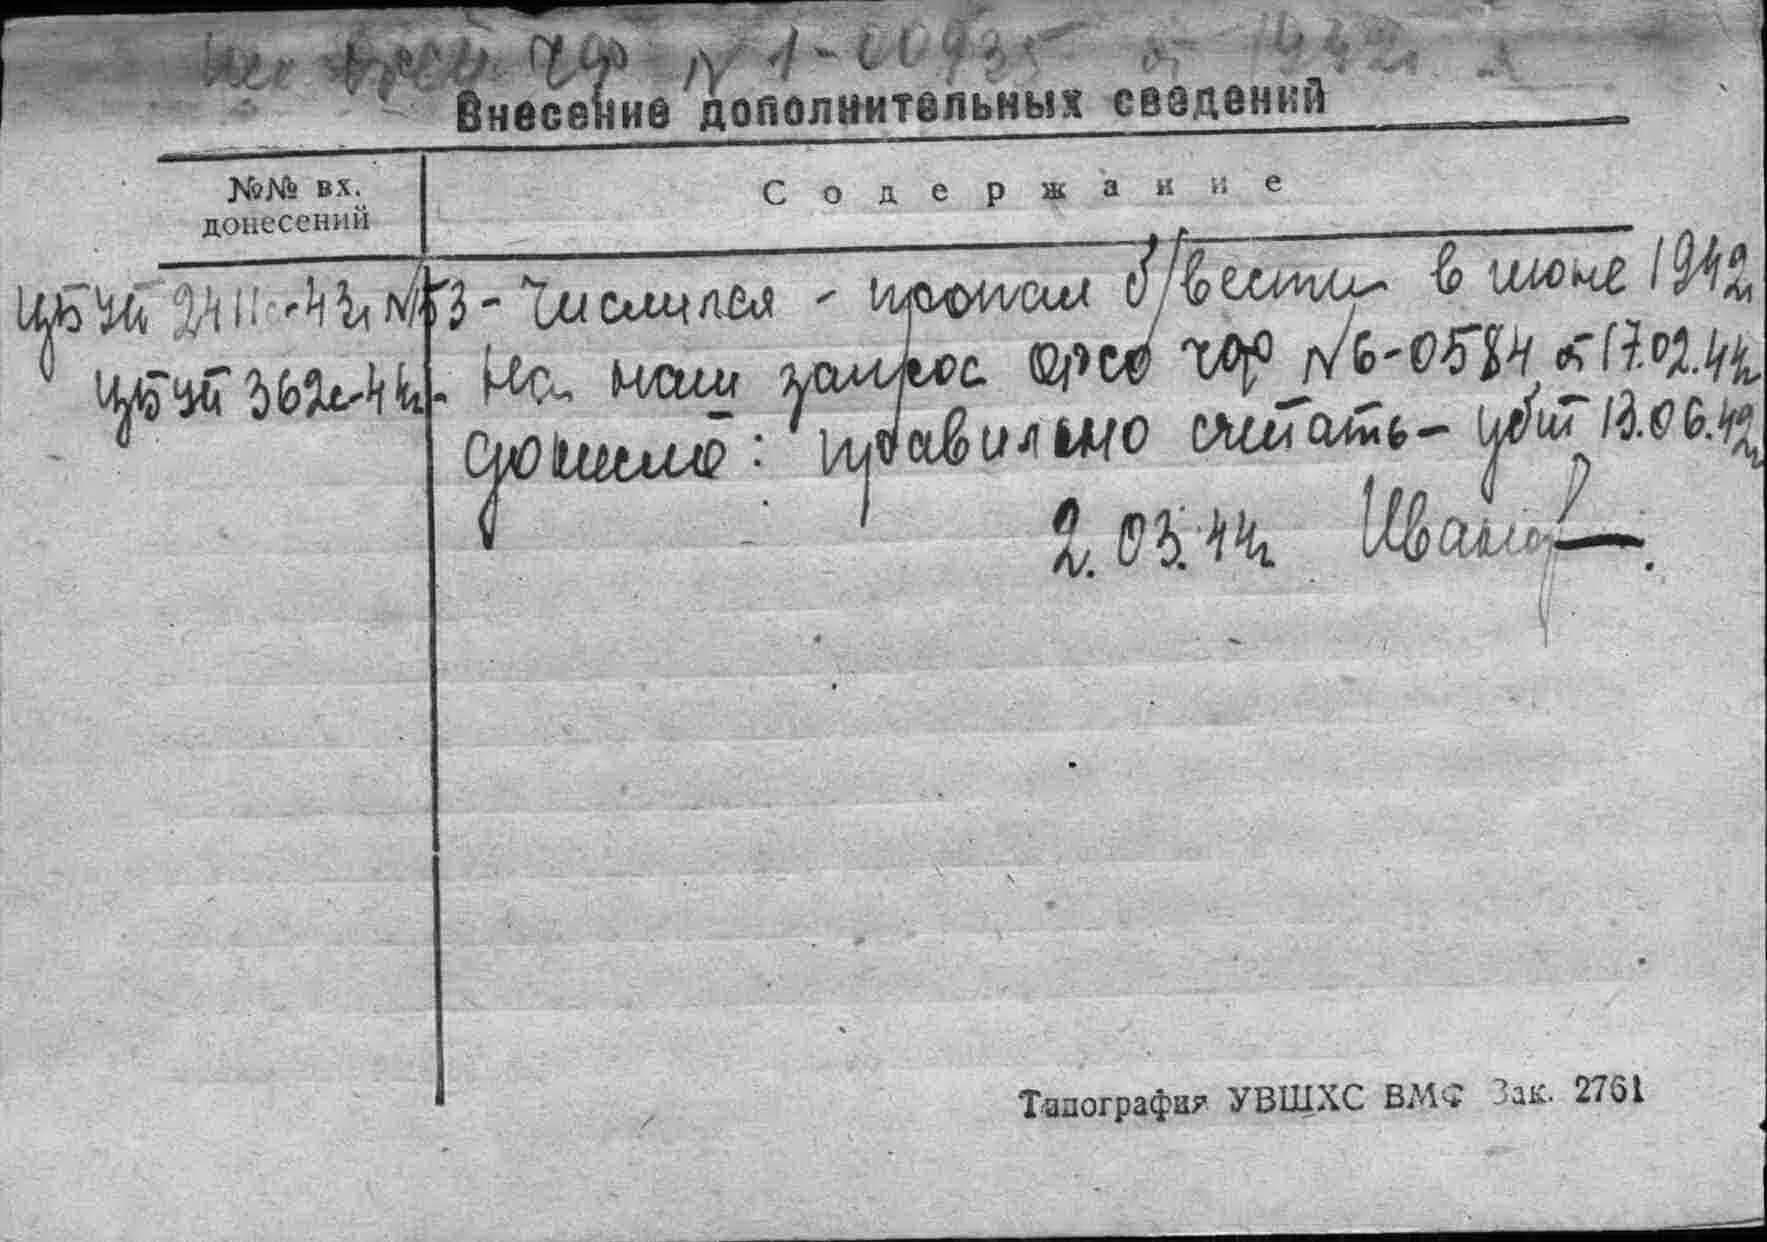 ЧФ N 1-00935 от 1942г.
Внесение дополнительных сведений
№№ вх. донесений
Содержание
ЦБ УП 2411с-43г N 53 - Числился - пропал б/вести в июне 1942г
ЦБ УП 362с-44г. - На наш запрос ОРСО ЧФ N6-0584 от 17.02.44г
донесло: правильно считать - убит 13.06.42г
2.03.44г Иванов
Типография УВШХС ВМФ Зак. 2761